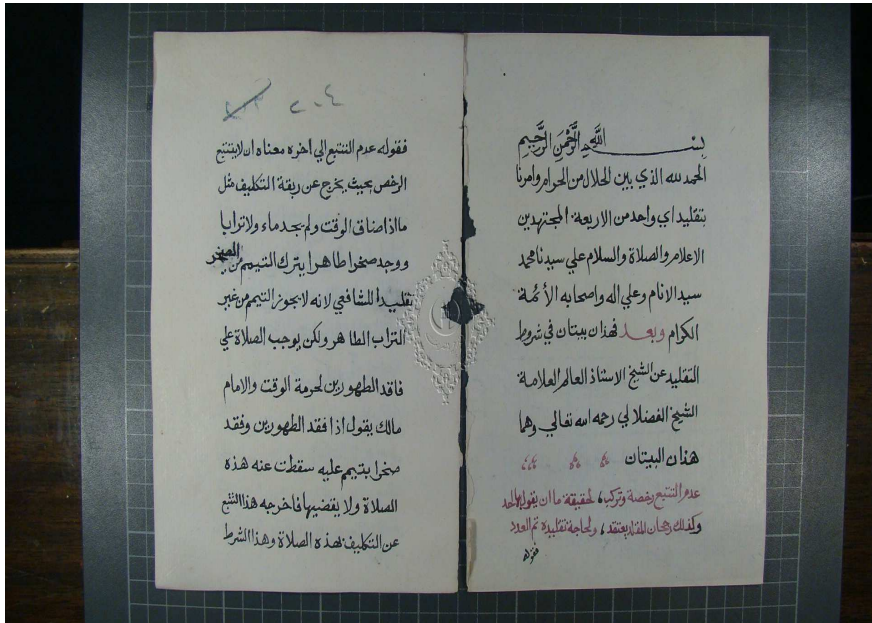 بسم الله الرحمن الرحيم
الحمد لله الذي بين الحلال من الحرام وامرنا
بتقليد اي واحد من الاربعة المجتهدين
الاعلام والصلاة والسلام علي سيدنا محمد
سيد الانام وعلي اله واصحابه الأئمة
الكرام وبعد فهذان بيتان في شروط
التقليد عن الشيخ الاستاذ العالم العلامة
الشيخ الفضلالي رحمه الله تعالي وهما
هذان البيتان
عدم التتبع رخصة وتركب، لحقيقة ما ان يقول بها احد
وكذلك رجحان المقلد يعتقد، ولحاجة تقليده تم العدد
فقوله
٢٠٤
فقوله عدم التتبع الي اخره معناه ان لا يتتبع
الرخص بحيث يخرج عن ربقة التكليف مثل
ما اذا ضاق الوقت ولم يجد ماء ولا ترابا
ووجد صخرا طاهرا يترك التيمم من الصخر
تقليدا للشافعي لانه لا يجوز التيمم من غير
التراب الطاهر ولكن يوجب الصلاة علي
فاقد الطهورين لحرمة الوقت والامام
مالك يقول اذا فقد الطهورين وفقد
صخرا يتيمم عليه سقطت عنه هذه
الصلاة ولا يقضيها فاخرجه هذا التتبع
عن التكليف لهذه الصلاة وهذا الشرط